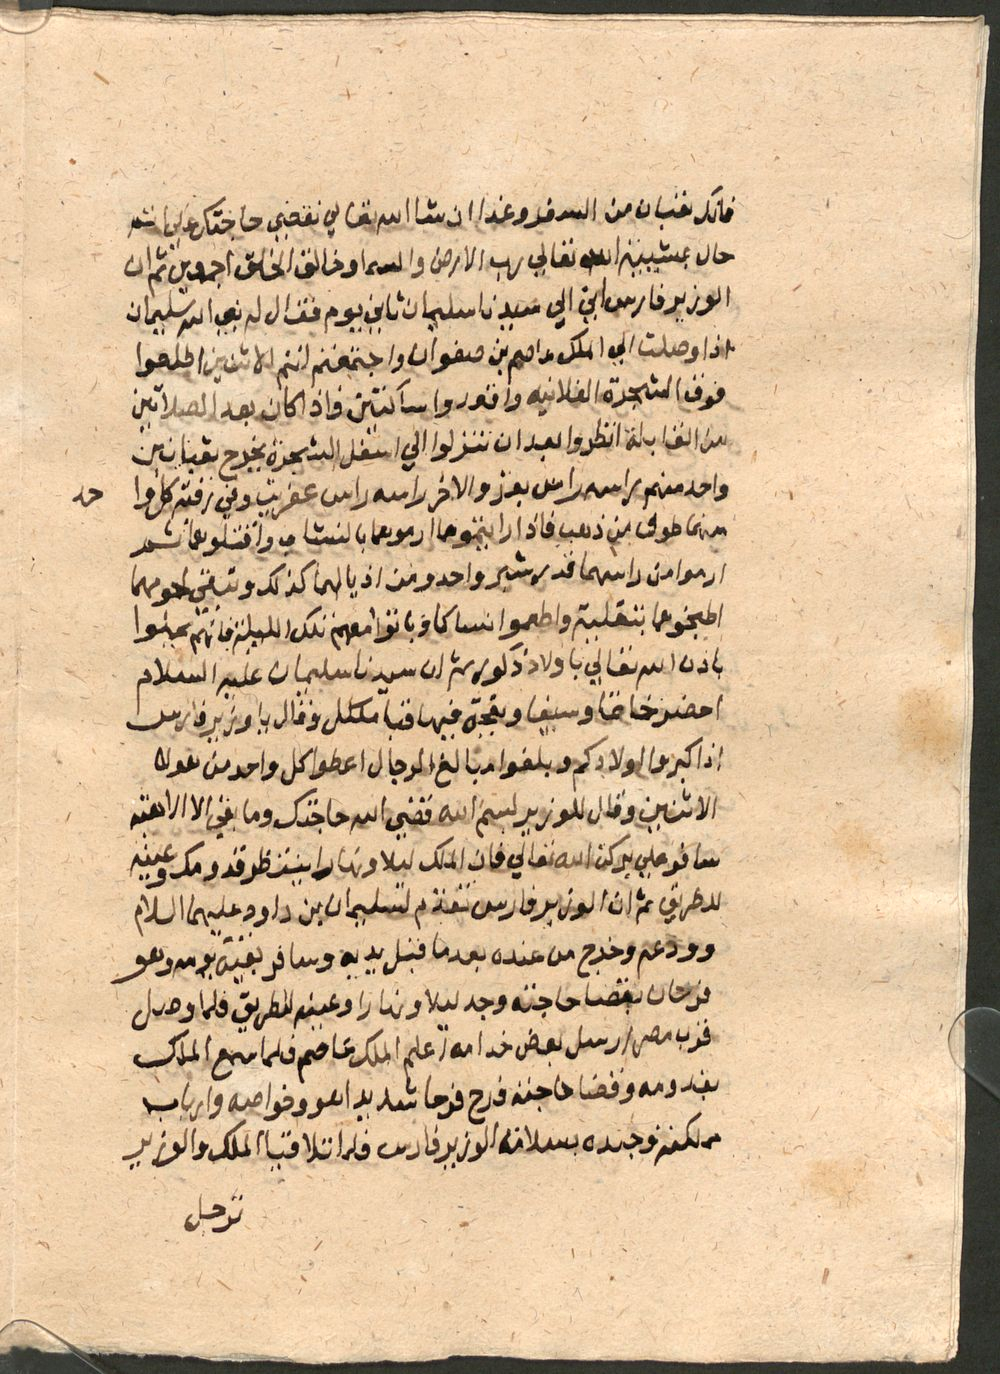 فانك تعبان من السفر وغدا ان شا الله تعالي نقضي حاجتك علي اتم
حال بمشيية الله تعالي رب الارض والسما وخالق الخلق اجمعين ثم ان
الوزير فارس اتي الي سيدنا سليمان ثاني يوم فقال له نبي الله سليمان
اذا وصلت الي الملك عاصم بن صفوان واجتمعتم انتم الاثنين اطلعوا
فوق الشجرة الفلانيه واقعدوا ساكتين فاذا كان بعد الصلاتين
من القايلة انظروا بعد ان تنزلوا الي اسفل الشجرة يخرج تعبانين
واحد منهم براسه راس بوز والاخر راسه راس عفريت وفي رقبة كل واحد
منهما طوق من ذهب فاذا رايتموهما ارموهما بالنشاب واقتلوهما ثم
ارموا من راسهما قدر شبر واحد ومن اذيالهما كذلك وتبقي لحومهما
اطبخوهما بتقلية واطعموا نساكم وباتوا معهم تلك الليلة فانهم يحبلوا
باذن الله تعالي باولاد ذكور ثم ان سيدنا سليمان عليه السلام
احضر خاتما وسيفا وبقجة فيها قبا مكلل وقال يا وزير فارس
اذا كبروا اولادكم وبلغوا مبالغ الرجال اعطوا كل واحد من هولا
الاثنين وقال للوزير بسم الله قضي الله حاجتك وما بقي الا الاهبه
سافر علي بركة الله تعالي فان الملك ليلا ونهارا ينتظر قدومك وعينه
للطريق ثم ان الوزير فارس تقدم لسليمان بن داود عليهما السلام
وودعه وخرج من عنده بعد ما قبل يديه وسافر بقية يومه وهو
فرحان بقضا حاجته وجد ليلا ونهارا وعينه للطريق فلما وصل
قرب مصر ارسل بعض خدامه اعلم الملك عاصم فلما سمع الملك
بقدومه وقضا حاجته فرح فرحا شديدا هو وخواصه وارباب
مملكته وجنده بسلامة الوزير فارس فلما تلاقيا الملك والوزير
ترجل